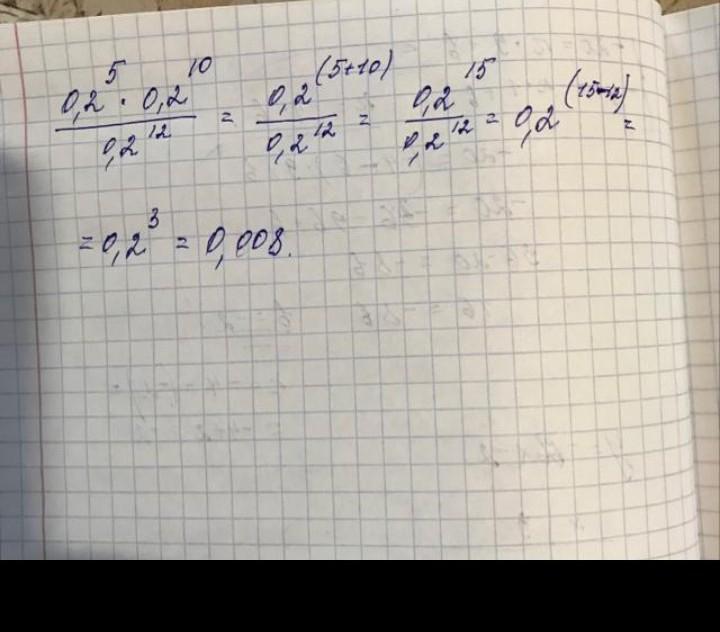 (0,2^5 · 0,2^10)/(0,2^12) = (0,2^(5+10))/(0,2^12) = (0,2^15)/(0,2^12) = 0,2^(15-12) =
= 0,2^3 = 0,008.